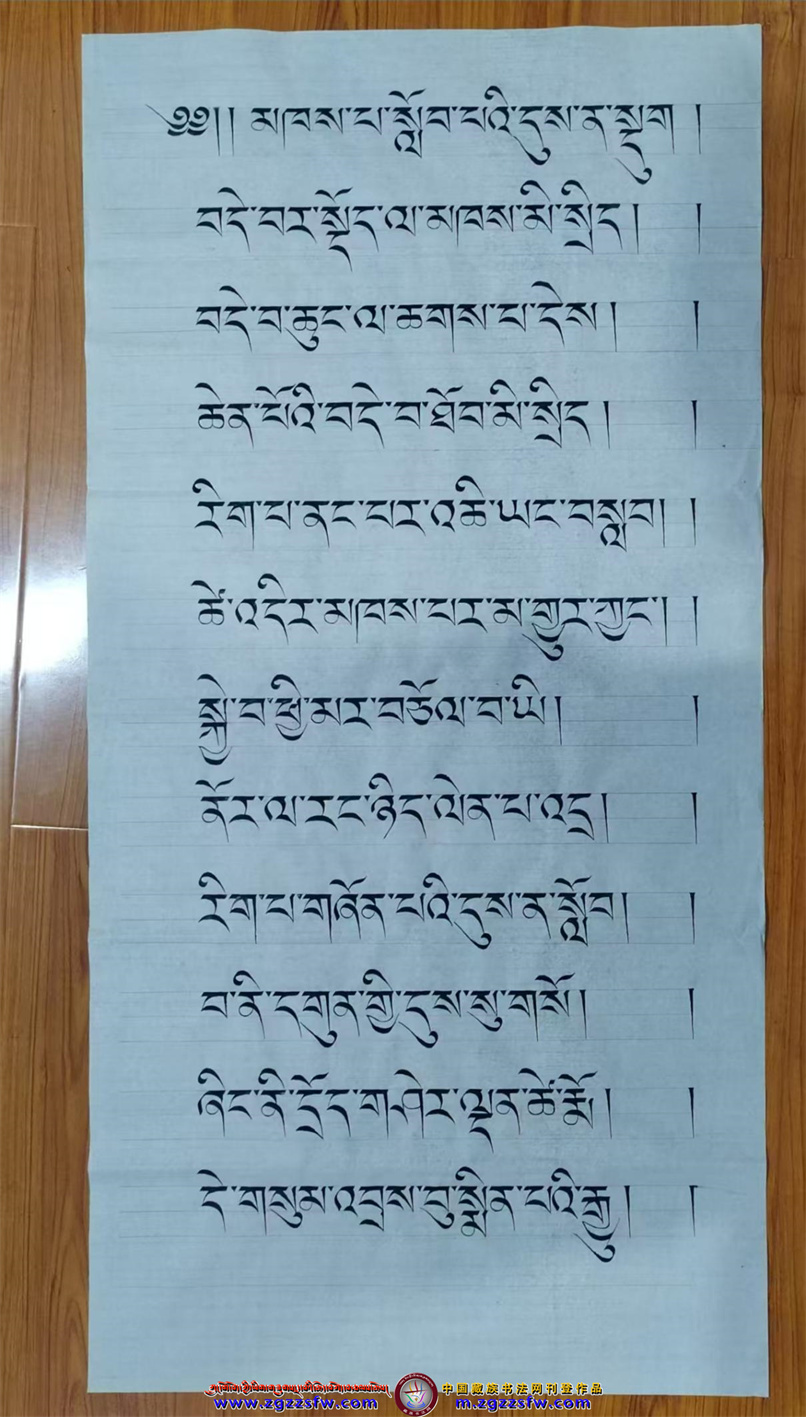 ༄༅།། མཁས་པ་སློབ་པའི་དུས་ན་སྡུག །
བདེ་བར་སྡོད་ལ་མཁས་མི་སྲིད། །
བདེ་བ་ཆུང་ལ་ཆགས་པ་དེས། །
ཆེན་པོའི་བདེ་བ་ཐོབ་མི་སྲིད། །
རིག་པ་ནང་པར་འཆི་ཡང་བསླབ། །
ཚེ་འདིར་མཁས་པར་མ་གྱུར་ཀྱང་། །
སྐྱེ་བ་ཕྱི་མར་བཅོལ་བ་ཡི། །
ནོར་ལ་རང་ཉིད་ལེན་པ་འདྲ། །
རིག་པ་གཞོན་པའི་དུས་ན་སློབ། །
བ་ནི་དགུན་གྱི་དུས་སུ་གསོ། །
ཞིང་ནི་དྲོད་གཤེར་ལྡན་ཚེ་རྨོ། །
དེ་གསུམ་འབྲས་བུ་སྨིན་པའི་རྒྱུ། །
中国藏族书法网刊登作品
www.zgzzsfw.com m.zgzzsfw.com